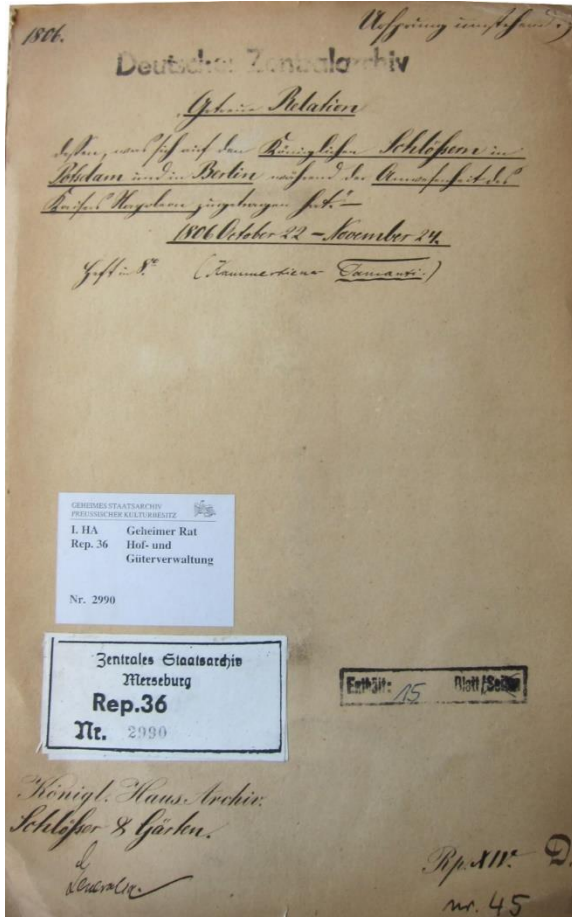 1806.
Deutsches Zentralarchiv
Getreue Relation
dessen, was sich auf den Königlichen Schlössern in
Potsdam und in Berlin während der Anwesenheit des
Kaisers Napoleon zugetragen hat.
1806 October 22 – November 24.
Heft in 8.º (Kammerdiener Tamanti.)
GEHEIMES STAATSARCHIV
PREUSSISCHER KULTURBESITZ
I. HA Geheimer Rat
Rep. 36 Hof- und
Güterverwaltung
Nr. 2990
Zentrales Staatsarchiv
Merseburg
Rep.36
Nr. 2990
Enthält: 15 Blatt/Seiten
Königl. Haus-Archiv.
Schlösser & Gärten.
Generalia.
Rep. XIV. D.
nr. 45